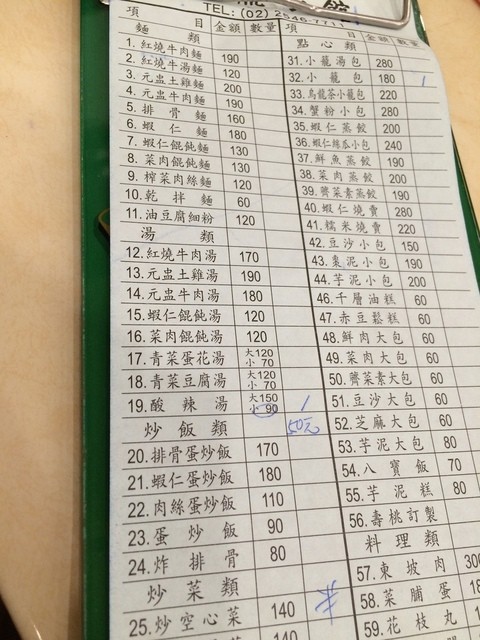 TEL: (02) 2546-7711
項 目 金額 數量
麵 類
1. 紅燒牛肉麵 190
2. 紅燒牛湯麵 120
3. 元盅土雞麵 200
4. 元盅牛肉麵 190
5. 排骨麵 160
6. 蝦仁麵 180
7. 蝦仁餛飩麵 130
8. 菜肉餛飩麵 130
9. 榨菜肉絲麵 120
10. 乾拌麵 60
11. 油豆腐細粉 120
湯 類
12. 紅燒牛肉湯 170
13. 元盅土雞湯 190
14. 元盅牛肉湯 180
15. 蝦仁餛飩湯 120
16. 菜肉餛飩湯 120
17. 青菜蛋花湯 大120 小 70
18. 青菜豆腐湯 大120 小 70
19. 酸辣湯 大150 小 90 1
炒飯類 50元
20. 排骨蛋炒飯 170
21. 蝦仁蛋炒飯 180
22. 肉絲蛋炒飯 110
23. 蛋炒飯 90
24. 炸排骨 80
炒菜類
25. 炒空心菜 140
140
項 目 金額 數量
點心類
31. 小籠湯包 280
32. 小籠包 180 1
33. 烏龍茶小籠包 220
34. 蟹粉小包 280
35. 蝦仁蒸餃 200
36. 蝦仁絲瓜小包 240
37. 鮮魚蒸餃 190
38. 菜肉蒸餃 200
39. 薺菜素蒸餃 190
40. 蝦仁燒賣 280
41. 糯米燒賣 220
42. 豆沙小包 150
43. 棗泥小包 190
44. 芋泥小包 200
46. 千層油糕 60
47. 赤豆鬆糕 60
48. 鮮肉大包 60
49. 菜肉大包 60
50. 薺菜素大包 60
51. 豆沙大包 60
52. 芝麻大包 60
53. 芋泥大包 80
54. 八寶飯 70
55. 芋泥糕 80
56. 壽桃訂製
料理類
57. 東坡肉
58. 菜脯蛋
59. 花枝丸